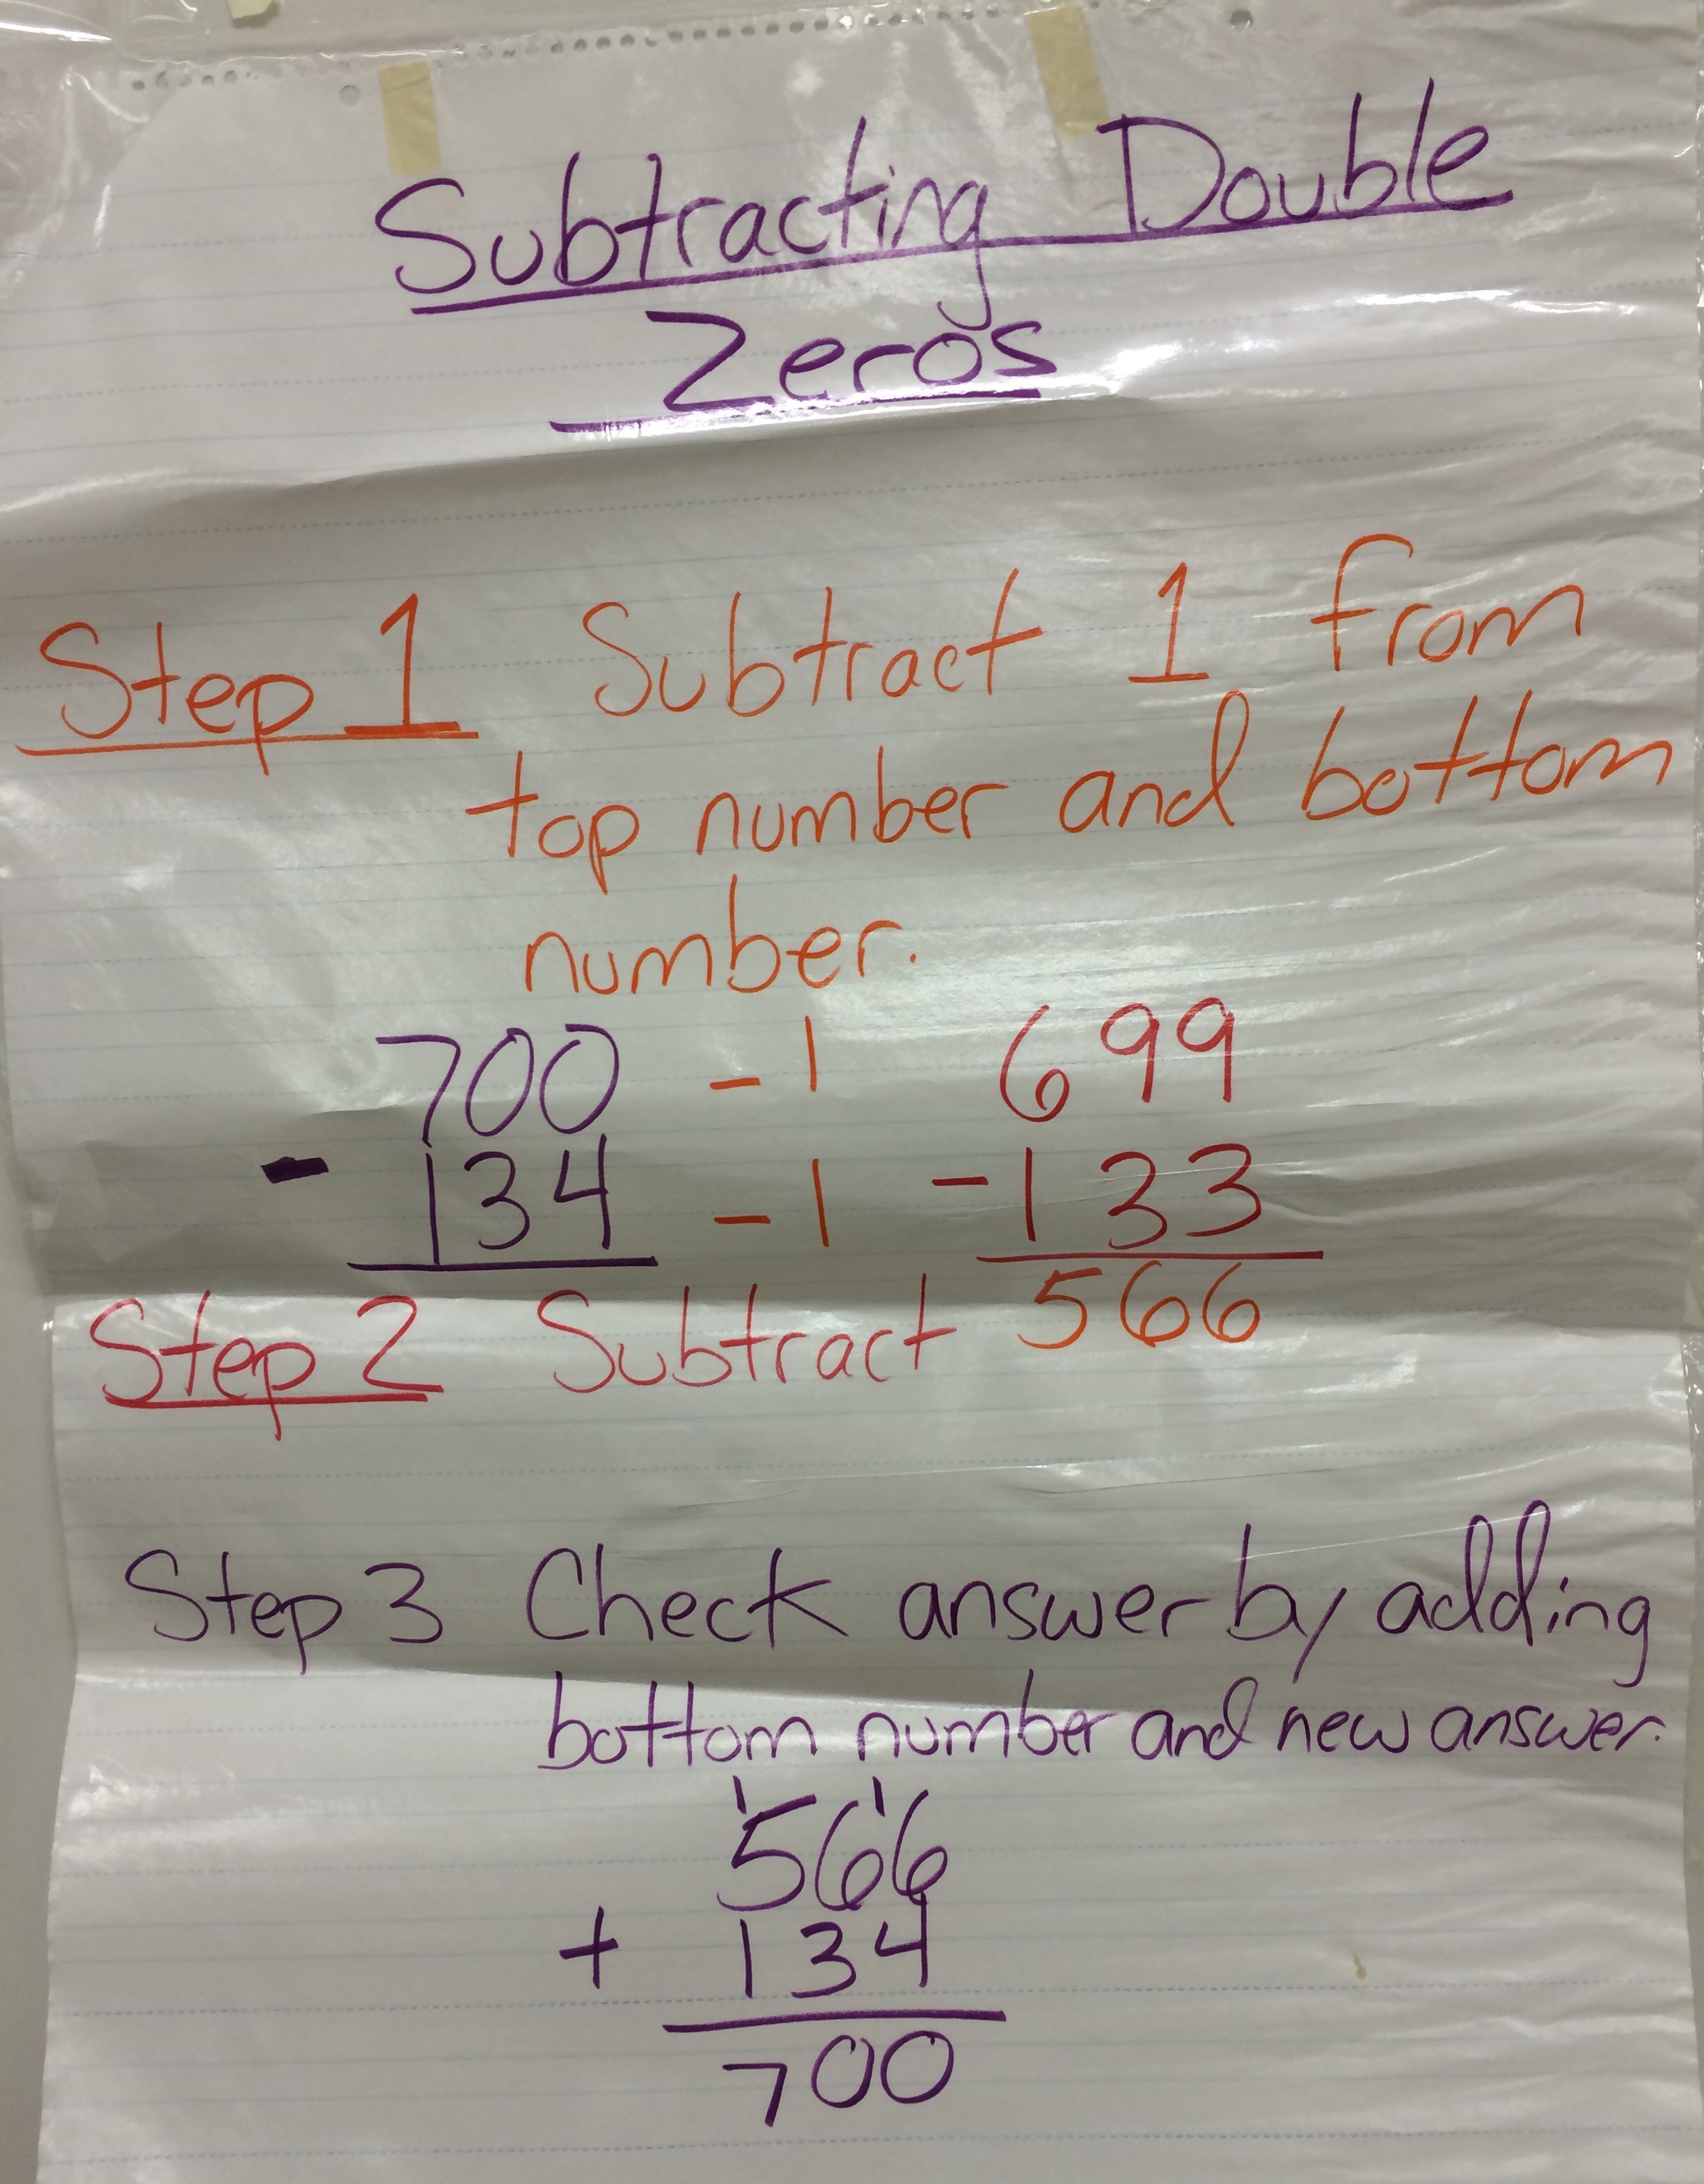 Subtracting Double
Zeros
Step 1 Subtract 1 from
top number and bottom
number.
700 - 1 699
- 134 - 1 - 133
566
Step 2 Subtract
Step 3 Check answer by adding
bottom number and new answer.
1 1
566
+ 134
700